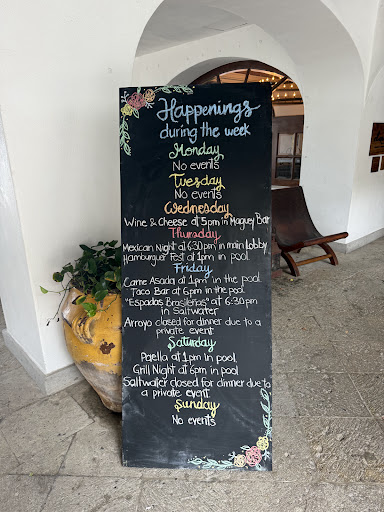 Happenings
during the week
Monday
No events
Tuesday
No events
Wednesday
Wine & Cheese at 5pm in Maguey Bar
Thursday
Mexican Night at 6:30pm in main lobby
Hamburguer Fest at 1pm in pool
Friday
Carne Asada at 1pm in the pool
Taco Bar at 6pm in the pool
"Espadas Brasileñas" at 6:30pm
in Saltwater
Arroyo closed for dinner due to a
private event
Saturday
Paella at 1pm in pool
Grill Night at 6pm in pool
Saltwater closed for dinner due to
a private event
Sunday
No events